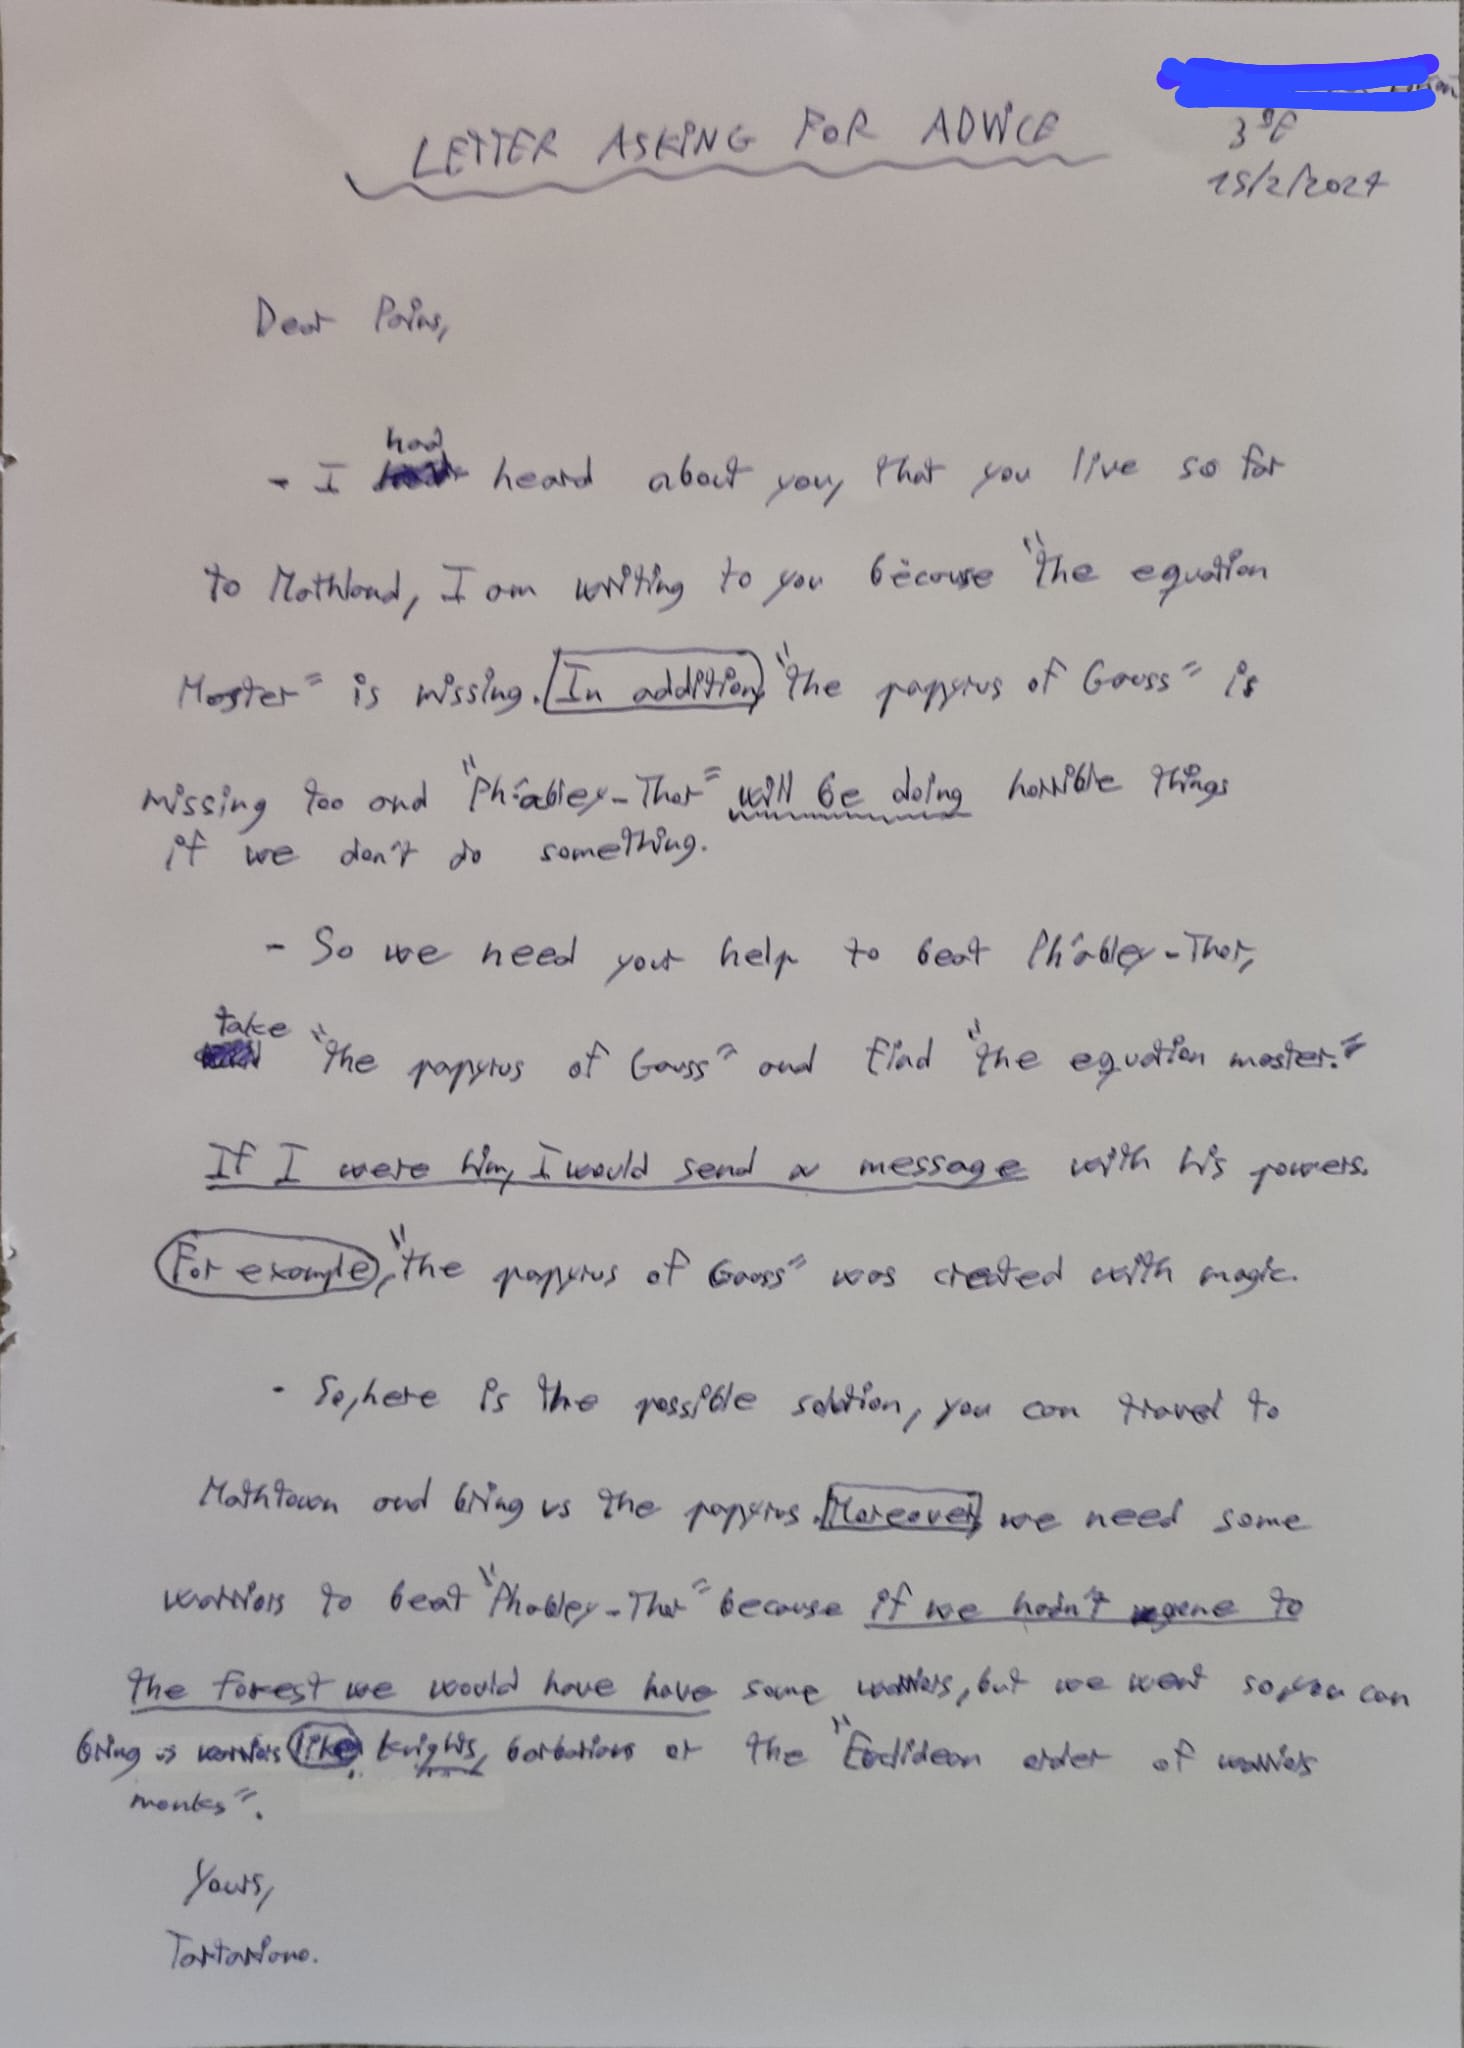 LETTER ASKING FOR ADWICE
3ºE
15/2/2024
Dear
had
- I heard about you, that you live so far
to Mathland, I am writing to you because "the equation
Master" is missing. In addition, "the papyrus of Gauss" is
missing too and "Phiabley-Thor" will be doing horrible things
if we don't do something.
- So we need your help to beat Phiabley-Thor,
take
"the papyrus of Gauss" and find "the equation master."
If I were him, I would send a message with his powers.
For example, "the papyrus of Gauss" was created with magic.
- So, here is the possible solution, you can travel to
Mathtown and bring us the papyrus. Moreover, we need some
warriors to beat "Phabley-Thor" because if we hadn't gone to
the forest we would have have some warriors, but we went so you can
bring us warriors like knights, barbarians or the "Euclidean order of warriors
monks".
Yours,